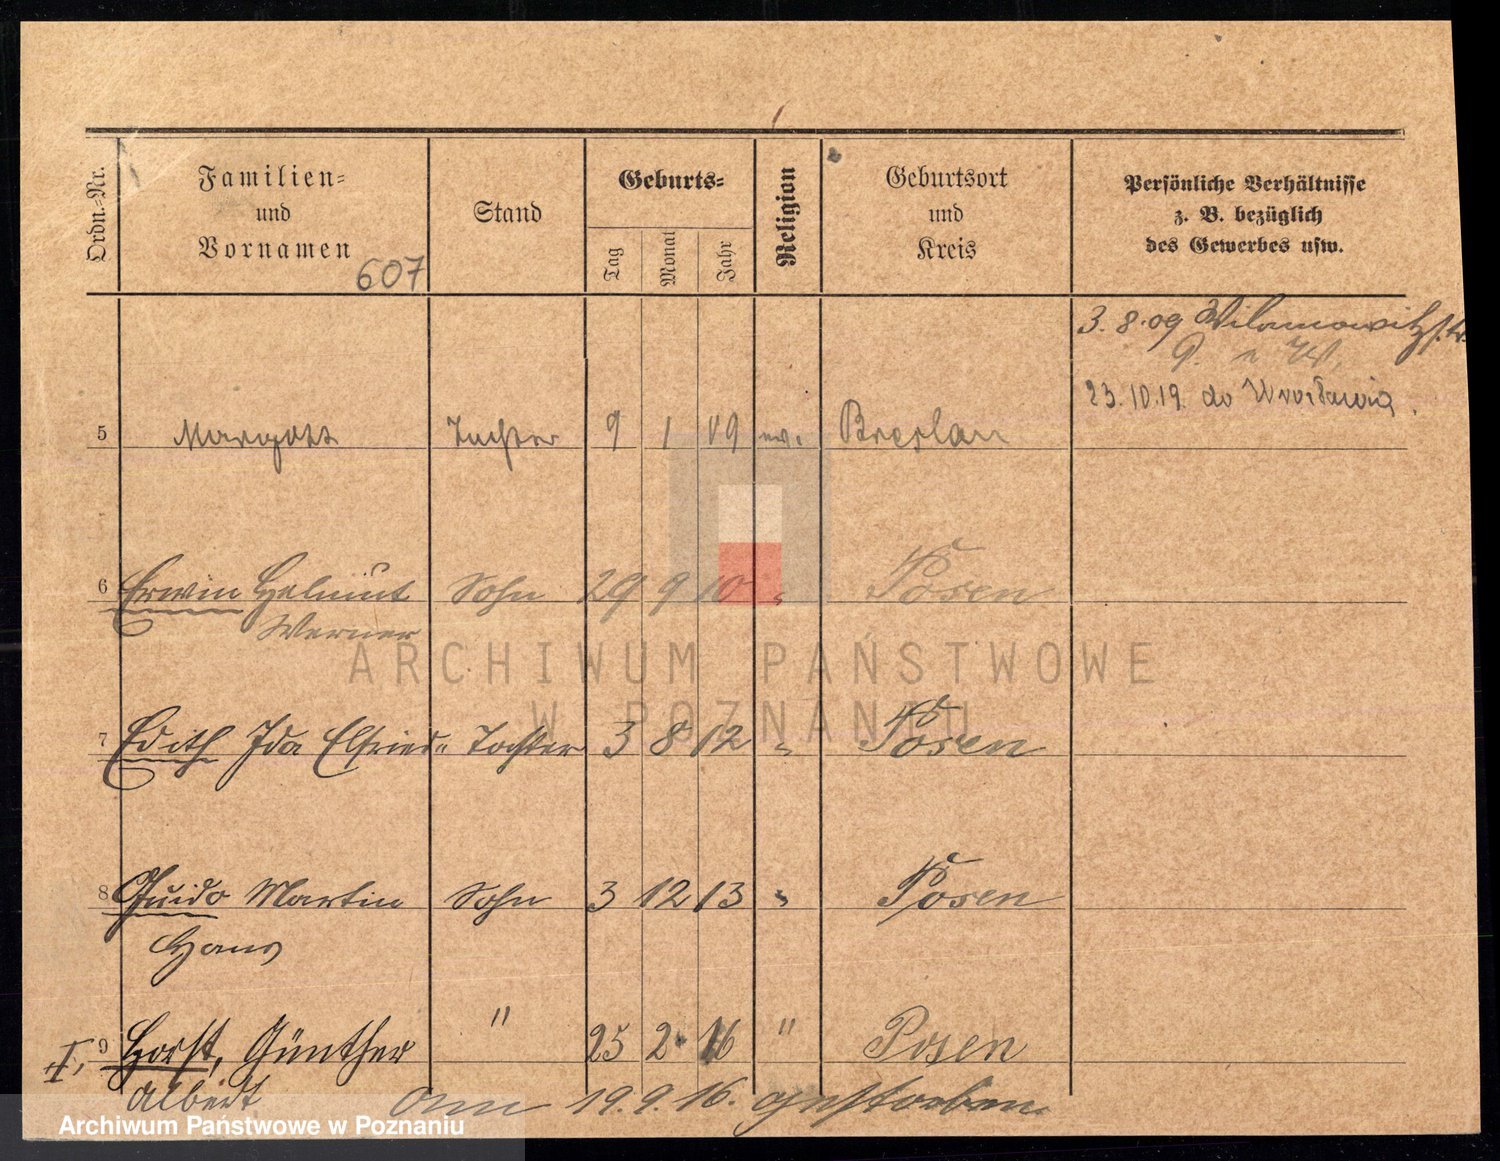 Ordn.-Nr.
Familien-
und
Vornamen
607
Stand
Geburts-
Tag
Monat
Jahr
Religion
Geburtsort
und
Kreis
Persönliche Verhältnisse
z. B. bezüglich
des Gewerbes usw.
3. 8. 09 Wilamowitzstr.
23. 10. 19. do Wrocławia.
5 Margott Tochter 9 1 09 ev. Breslau
6 Erwin Helmut Sohn 29 9 10 " Posen
Werner
7 Edith Ida Elfriede Tochter 3 8 12 " Posen
8 Guido Martin Sohn 3 12 13 " Posen
Hans
9 Horst, Günther " 25 2 16 " Posen
Albert am 19. 9. 16. gestorben
ARCHIWUM PAŃSTWOWE
W POZNANIU
Archiwum Państwowe w Poznaniu